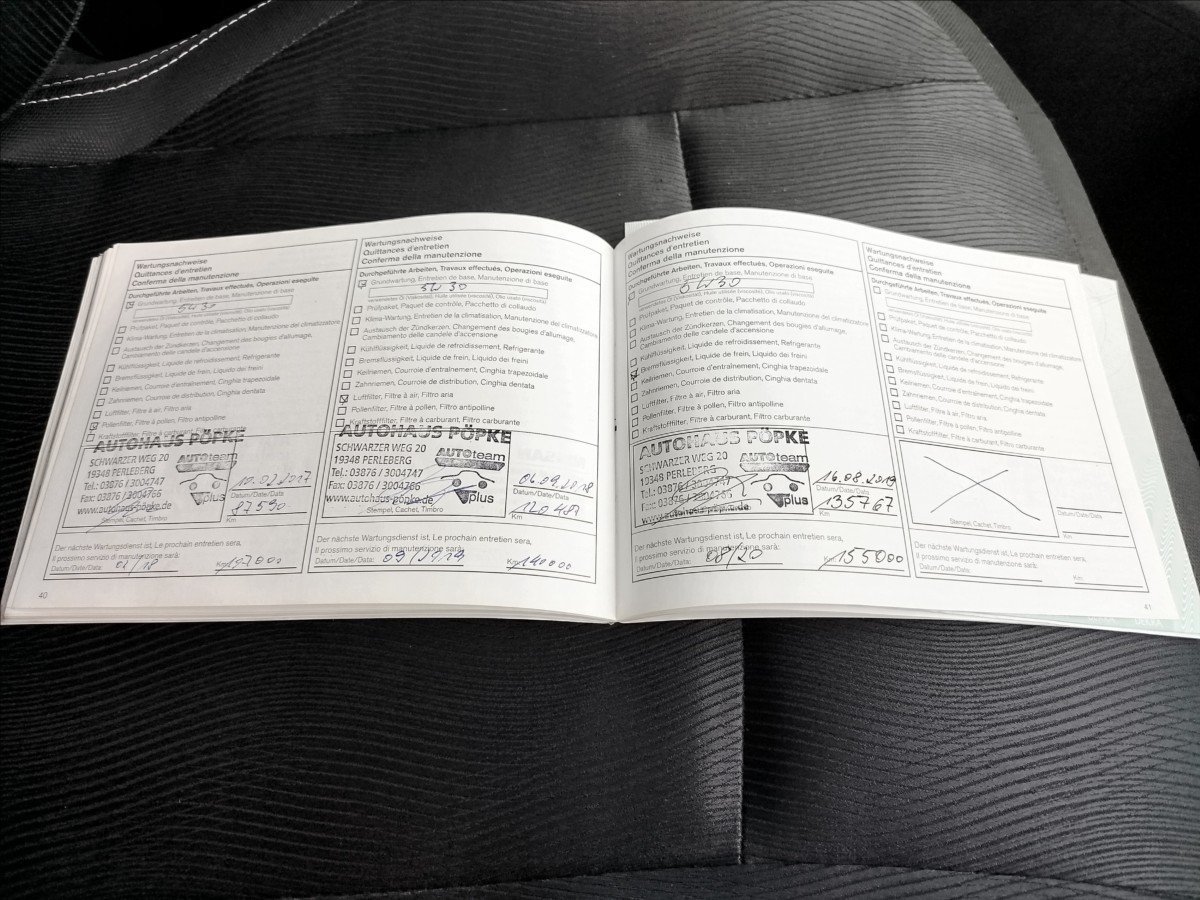 Wartungsnachweise
Quittances d'entretien
Conferma della manutenzione
Durchgeführte Arbeiten, Travaux effectués, Operazioni eseguite
Grundwartung, Entretien de base, Manutenzione di base
5W30
Verwendetes Öl (Viskosität), Huile utilisée (viscosité), Olio usato (viscosità)
Prüfpaket, Paquet de contrôle, Pacchetto di collaudo
Klima-Wartung, Entretien de la climatisation, Manutenzione del climatizzatore
Austausch der Zündkerzen, Changement des bougies d'allumage,
Cambiamento delle candele d'accensione
Kühlflüssigkeit, Liquide de refroidissement, Refrigerante
Bremsflüssigkeit, Liquide de frein, Liquido dei freni
Keilriemen, Courroie d'entraînement, Cinghia trapezoidale
Zahnriemen, Courroie de distribution, Cinghia dentata
Luftfilter, Filtre à air, Filtro aria
Pollenfilter, Filtre à pollen, Filtro antipolline
AUTOHAUS PÖPKE
SCHWARZER WEG 20
19348 PERLEBERG
Tel.: 03876 / 3004747
Fax: 03876 / 3004766
www.autohaus-pöpke.de
AUTOteam
plus
Stempel, Cachet, Timbro
10.02.2017
Datum/Date/Data
87590
Km
Der nächste Wartungsdienst ist, Le prochain entretien sera,
Il prossimo servizio di manutenzione sarà:
Datum/Date/Data:
Km:
40
Wartungsnachweise
Quittances d'entretien
Conferma della manutenzione
Durchgeführte Arbeiten, Travaux effectués, Operazioni eseguite
Grundwartung, Entretien de base, Manutenzione di base
5W30
Verwendetes Öl (Viskosität), Huile utilisée (viscosité), Olio usato (viscosità)
Prüfpaket, Paquet de contrôle, Pacchetto di collaudo
Klima-Wartung, Entretien de la climatisation, Manutenzione del climatizzatore
Austausch der Zündkerzen, Changement des bougies d'allumage,
Cambiamento delle candele d'accensione
Kühlflüssigkeit, Liquide de refroidissement, Refrigerante
Bremsflüssigkeit, Liquide de frein, Liquido dei freini
Keilriemen, Courroie d'entraînement, Cinghia trapezoidale
Zahnriemen, Courroie de distribution, Cinghia dentata
Luftfilter, Filtre à air, Filtro aria
Pollenfilter, Filtre à pollen, Filtro antipolline
Kraftstofffilter, Filtre à carburant, Filtro carburante
AUTOHAUS PÖPKE
SCHWARZER WEG 20
19348 PERLEBERG
Tel.: 03876 / 3004747
Fax: 03876 / 3004766
www.autohaus-pöpke.de
AUTOteam
plus
Stempel, Cachet, Timbro
06.09.2018
Datum/Date/Data
120481
Km
Der nächste Wartungsdienst ist, Le prochain entretien sera,
Il prossimo servizio di manutenzione sarà:
Datum/Date/Data: 09/2019
Km: 140000
Wartungsnachweise
Quittances d'entretien
Conferma della manutenzione
Durchgeführte Arbeiten, Travaux effectués, Operazioni eseguite
Grundwartung, Entretien de base, Manutenzione di base
5W30
Verwendetes Öl (Viskosität), Huile utilisée (viscosité), Olio usato (viscosità)
Prüfpaket, Paquet de contrôle, Pacchetto di collaudo
Klima-Wartung, Entretien de la climatisation, Manutenzione del climatizzatore
Austausch der Zündkerzen, Changement des bougies d'allumage,
Cambiamento delle candele d'accensione
Kühlflüssigkeit, Liquide de refroidissement, Refrigerante
Bremsflüssigkeit, Liquide de frein, Liquido dei freni
Keilriemen, Courroie d'entraînement, Cinghia trapezoidale
Zahnriemen, Courroie de distribution, Cinghia dentata
Luftfilter, Filtre à air, Filtro aria
Pollenfilter, Filtre à pollen, Filtro antipolline
Kraftstofffilter, Filtre à carburant, Filtro carburante
AUTOHAUS PÖPKE
SCHWARZER WEG 20
19348 PERLEBERG
Tel.: 03876 / 3004747
Fax: 03876 / 3004766
www.autohaus-pöpke.de
AUTOteam
plus
16.08.2019
Datum/Date/Data
135767
Km
Der nächste Wartungsdienst ist, Le prochain entretien sera,
Il prossimo servizio di manutenzione sarà:
Datum/Date/Data: 08/20
Km: 155000
Wartungsnachweise
Quittances d'entretien
Conferma della manutenzione
Durchgeführte Arbeiten, Travaux effectués, Operazioni eseguite
Grundwartung, Entretien de base, Manutenzione di base
Verwendetes Öl (Viskosität), Huile utilisée (viscosité), Olio usato (viscosità)
Prüfpaket, Paquet de contrôle, Pacchetto di collaudo
Klima-Wartung, Entretien de la climatisation, Manutenzione del climatizzatore
Austausch der Zündkerzen, Changement des bougies d'allumage,
Cambiamento delle candele d'accensione
Kühlflüssigkeit, Liquide de refroidissement, Refrigerante
Bremsflüssigkeit, Liquide de frein, Liquido dei freni
Keilriemen, Courroie d'entraînement, Cinghia trapezoidale
Zahnriemen, Courroie de distribution, Cinghia dentata
Luftfilter, Filtre à air, Filtro aria
Pollenfilter, Filtre à pollen, Filtro antipolline
Kraftstofffilter, Filtre à carburant, Filtro carburante
Stempel, Cachet, Timbro
Datum/Date/Data
Km
Der nächste Wartungsdienst ist, Le prochain entretien sera,
Il prossimo servizio di manutenzione sarà:
Datum/Date/Data:
Km:
41